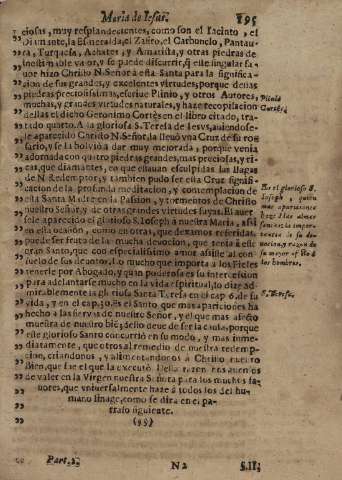 Maria de Iesus. 195
ciosas, muy resplandecientes, como son el Iacinto, el
Diamante, la Esmeralda, el Zafiro, el Carbunclo, Pantau-
ra, Turquesa, Achates, y Amatista, otras piedras de
inestimable valor, y se puede discurrir, q̃ este singular fa-
uor hizo Christo N. Señor à esta Santa para la significa-
cion de sus grandes, y excelentes virtudes, porque de las
piedras preciosissimas, escriue Plinio, y otros Autores,
muchas, y grandes virtudes naturales, y haze recopilacion
dellas el dicho Geronimo Cortès en el libro citado, tra-
tado quarto. A la gloriosa S. Teresa de Iesvs, auiendose-
le aparecido Christo N. Señor, la lleuò vna Cruz de su ro-
sario, y se la bolviò à dar muy mejorada, porque venia
adornada con quatro piedras grandes, mas preciosas, y ri-
cas, que diamantes, en que estauan esculpidas las llagas
de N. Redemptor, y tambien pudo ser esta Cruz signifi-
cacion de la profunda meditacion, y contemplacion de
esta Santa Madre en la Passion, y tormentos de Christo
nuestro Señor, y de otras grandes virtudes suyas. El auer-
sele aparecido el glorioso S. Ioseph à nuestra Maria, assi
en esta ocasion, como en otras, que dexamos referidas,
puede ser fruto de la mucha devocion, que tenia à este
gran Santo, que con especialissimo amor assiste al con-
suelo de sus deuotos. Lo mucho que importa à los Fieles
tenerle por Abogado, y quan poderosa es su intercession
para adelantarse mucho en la vida espiritual, lo dize ad-
mirablemente la gloriosa Santa Teresa en el cap. 6. de su
vida, y en el cap. 30. Es el Santo, que mas apariciones ha
hecho à las siervas de nuestro Señor, y el que mas afecto
muestra de nuestro biẽ; dello deue de ser la causa, porque
este glorioso Santo concurriò en su modo, y mas inme-
diatamente, que otros al remedio de nuestra redemp-
cion, criandonos, y alimentandonos à Christo nuestro
Bien, que fue el que la executò. Desta razon nos auemos
de valer en la Virgen nuestra Señora para los muchos fa-
uores, que vniuersalmente haze à todos los del hu-
mano linage, como se dirà en el pa-
rrafo siguiente.
(§§)
Part. 2. N2 §.II;
Geronimo
Cortès.
Es el glorioso S.
Ioseph à quien
mas apariciones
haze à las almes
santas: la impor-
tancia de su de-
uocion, y razon de
su mayor afecto à
los hombres.
S. Teresa.